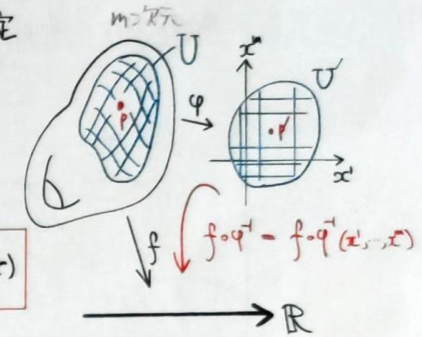 m次元
U
φ
xᵐ
U'
p
p'
x¹
f
f∘φ⁻¹ = f∘φ⁻¹(x¹,…,xᵐ)
ℝ